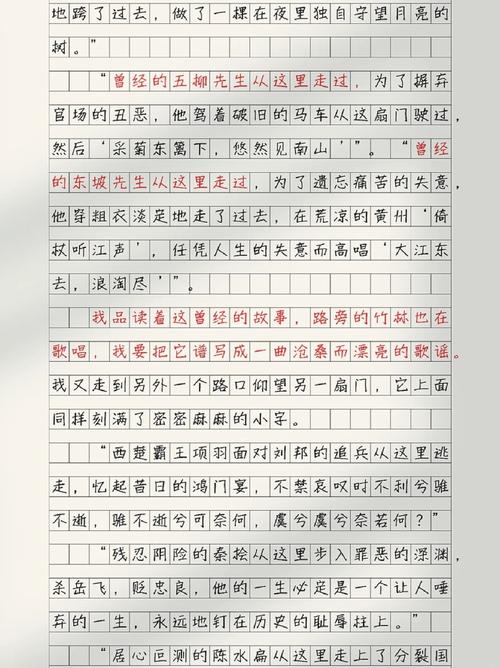 地跨了过去，做了一棵在夜里独自守望月亮的
树。”
“曾经的五柳先生从这里走过，为了摒弃
官场的丑恶，他驾着破旧的马车从这扇门驶过，
然后‘采菊东篱下，悠然见南山’”。“曾经
的东坡先生从这里走过，为了遗忘痛苦的失意，
他穿粗衣淡足地走了过去，在荒凉的黄州‘倚
杖听江声’，任凭人生的失意而高唱‘大江东
去，浪淘尽’”。
我品读着这曾经的故事，路旁的竹林也在
歌唱，我要把它谱写成一曲沧桑而漂亮的歌谣。
我又走到另外一个路口仰望另一扇门，它上面
同样刻满了密密麻麻的小字。
“西楚霸王项羽面对刘邦的追兵从这里逃
走，忆起昔日的鸿门宴，不禁哀叹时不利兮骓
不逝，骓不逝兮可奈何，虞兮虞兮奈若何？”
“残忍阴险的秦桧从这里步入罪恶的深渊，
杀岳飞，贬忠良，他的一生必定是一个让人唾
弃的一生，永远地钉在历史的耻辱柱上。”
“居心叵测的陈水扁从这里走上了分裂国